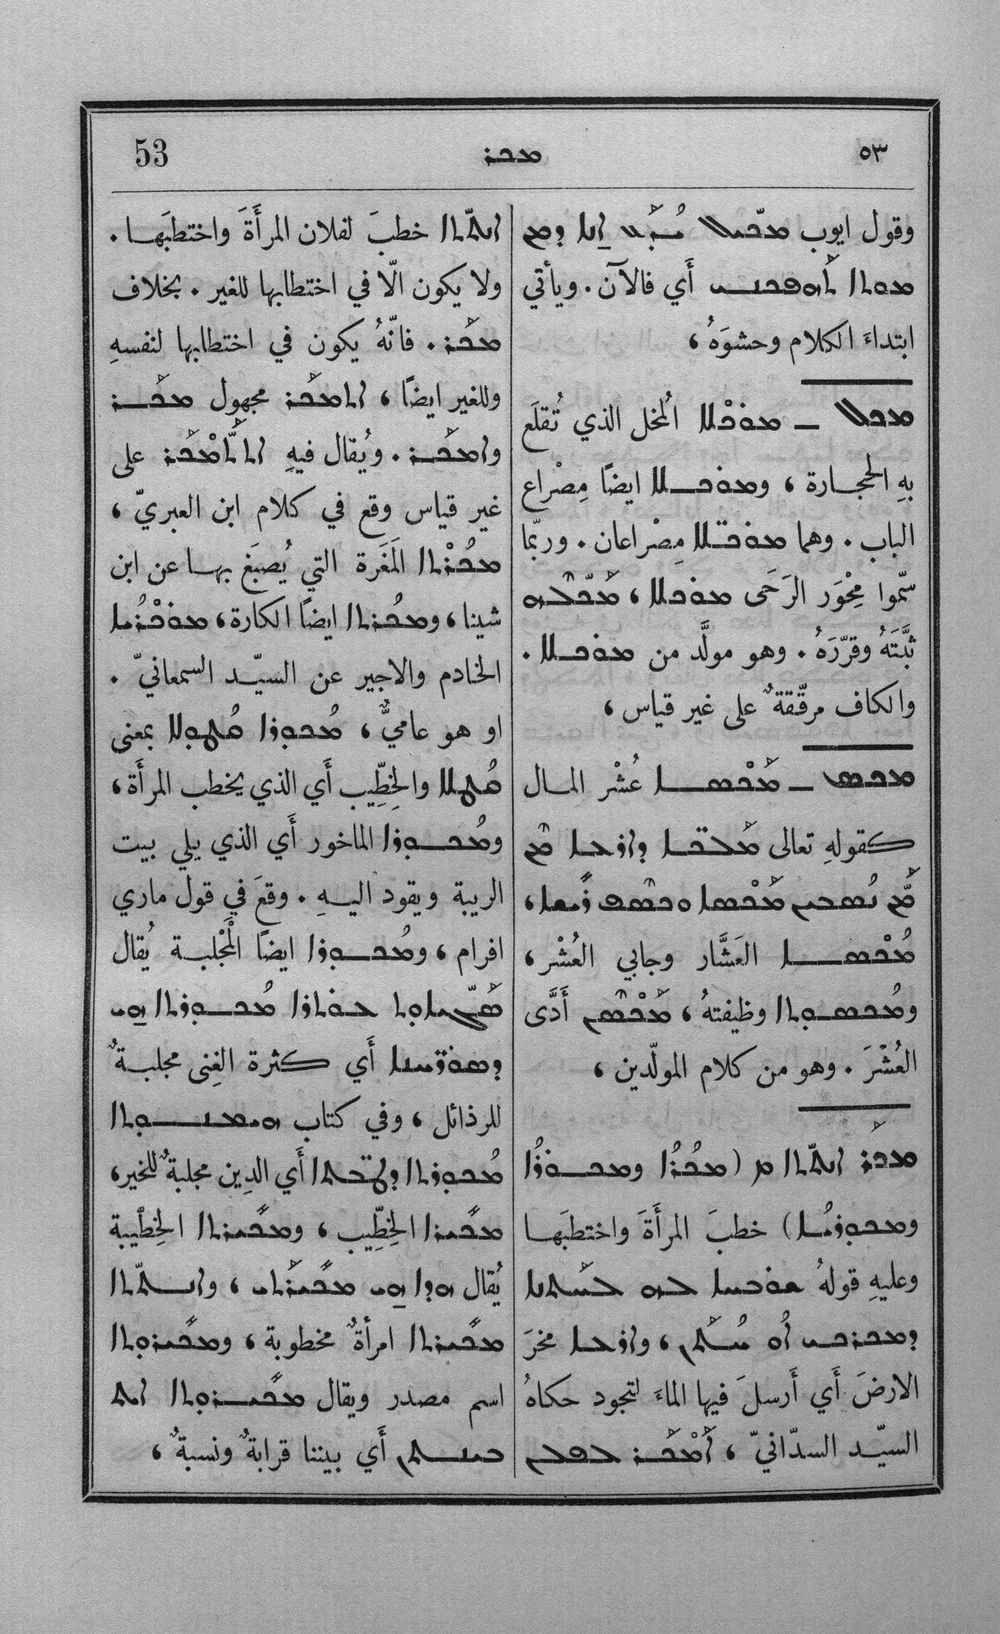 53
ܡܟܪ
٥٣
وقول ايوب ܡܟܝܠ ܝܕܥ ܐܢܐ ܕܡܢ
ܡܘܬܐ ܬܗܦܟܢܝ أَي فالآن. ويأتي
ابتداءَ الكلام وحشوَهُ،
ܡܟܠ – ܡܘܟܠܐ المُخل الذي تُقلَع
بهِ الحجارة، ܘܡܘܟܠܐ ايضًا مِصْراع
الباب. وهما ܡܘܟ̈ܠܐ مِصْراعان. وربّما
سمّوا مِحْوَر الرَحَى ܡܘܟܠܐ، ܡܟܠܗ
ثبَّتَهُ وقرّرَهُ. وهو مولَّد من ܡܘܟܠܐ.
والكاف مرقّقةٌ على غير قياس،
ܡܟܣ – ܡܟܣܐ عُشْر المال
كقولهِ تعالى ܡܠܟ̈ܐ ܕܐܪܥܐ ܡܢ
ܡܢ ܢܣܒܝܢ ܡܟܣܐ ܘܟܣܦ ܪܝܫܐ،
ܡܟܣܐ العَشَّار وجابي العُشْر،
ܘܡܟܣܘܬܐ وظيفتهُ، ܡܟܣ أَدَّى
العُشْرَ. وهو من كلام المولّدين،
ܡܟܪ ܐܢܬܬܐ ܡ (ܡܟܪܐ ܘܡܟܘܪܐ
ܘܡܟܘܪܝܐ) خطبَ المرأَةَ واختطبَها
وعليهِ قولهُ ܫܘܒܚܐ ܠܗ ܠܚܬܢܐ
ܕܡܟܪܟܝ ܐܘ، ܘܐܪܥܐ مخرَ
الارضَ أَي أَرسلَ فيها الماءَ لتجود حكاهُ
السيّد السدّانيّ، ܐܡܟܪ ܠܦܠܢ
ܐܢܬܬܐ خطبَ لفلان المرأَةَ واختطبَها.
ولا يكون الّا في اختطابها للغير. بخلاف
ܡܟܪ. فانّهُ يكون في اختطابها لنفسهِ
وللغير ايضًا، ܐܬܡܟܪ مجهول ܡܟܪ
ܘܐܡܟܪ. ويُقال فيهِ ܐܬܬܡܟܪ على
غير قياس وقع في كلام ابن العبريّ،
ܡܟܪܬܐ المَغَرة التي يُصبَغ بها عن ابن
شينا، ܘܡܟܪܬܐ ايضًا الكارة، ܡܘܟܪܝܐ
الخادم والاجير عن السيّد السمعانيّ.
او هو عاميٌّ، ܡܟܘܪܐ ܩܛܘܠܐ بمعنى
ܩܛܠܐ والخِطِّيب أَي الذي يخطب المرأَة،
ܘܡܟܘܪܐ الماخور أَي الذي يلي بيت
الريبة ويقود اليهِ. وقعَ في قول ماري
افرام، ܘܡܟܘܪܐ ايضًا المَجْلبة يُقال
ܣܓܝܐܘܬܐ ܥܘܬܪܐ ܡܟܘܪܬܐ ܗܝ
ܕܣܘܪ̈ܚܢܐ أَي كثرة الغِنى مجلبةٌ
للرذائل، وفي كتاب ܗܝܡܢܘܬܐ
ܡܟܘܪܬܐ ܕܛܒ̈ܬܐ أَي الدِين مجلبةٌ للخير،
ܡܟܝܪܐ الخِطِّيب، ܘܡܟܝܪܬܐ الخِطِّيبة
يُقال ܗܕܐ ܗܝ ܡܟܝܪܬܝ، ܘܐܢܬܬܐ
ܡܟܝܪܬܐ امرأةٌ مخطوبة، ܘܡܟܝܪܘܬܐ
اسم مصدر ويقال ܡܟܝܪܘܬܐ ܐܝܬ
ܒܝܢܬܢ أَي بيننا قرابةٌ ونسبةٌ،